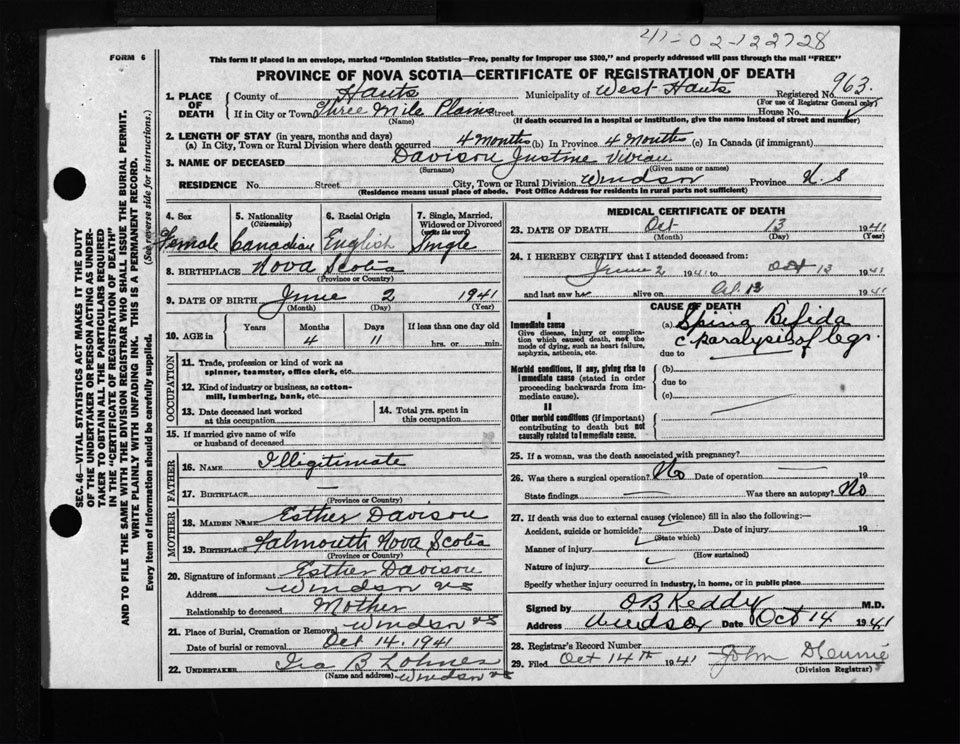 41-02-122728
FORM 6
This form if placed in an envelope, marked "Dominion Statistics—Free, penalty for improper use $300," and properly addressed will pass through the mail "FREE"
PROVINCE OF NOVA SCOTIA—CERTIFICATE OF REGISTRATION OF DEATH
1. PLACE OF DEATH
County of Hants Municipality of West Hants Registered No. 963
(For use of Registrar General only)
If in City or Town Three Mile Plains Street House No.
(Name) (If death occurred in a hospital or institution, give the name instead of street and number)
2. LENGTH OF STAY (in years, months and days)
(a) In City, Town or Rural Division where death occurred 4 Months (b) In Province 4 Months (c) In Canada (if immigrant)
3. NAME OF DECEASED Davison Justine Vivian
(Surname) (Given name or names)
RESIDENCE No. Street City, Town or Rural Division Windsor Province N.S
(Residence means usual place of abode. Post Office Address for residents in rural parts not sufficient)
4. Sex Female
5. Nationality (Citizenship) Canadian
6. Racial Origin English
7. Single, Married, Widowed or Divorced (write the word) Single
8. BIRTHPLACE Nova Scotia
(Province or Country)
9. DATE OF BIRTH June 2 1941
(Month) (Day) (Year)
10. AGE in Years Months Days If less than one day old
4 11 hrs. or min.
OCCUPATION
11. Trade, profession or kind of work as spinner, teamster, office clerk, etc.
12. Kind of industry or business, as cotton-mill, lumbering, bank, etc.
13. Date deceased last worked at this occupation
14. Total yrs. spent in this occupation
15. If married give name of wife or husband of deceased
FATHER
16. NAME Illigitimate
17. BIRTHPLACE —
(Province or Country)
MOTHER
18. MAIDEN NAME Esther Davison
19. BIRTHPLACE Falmouth Nova Scotia
(Province or Country)
20. Signature of informant Esther Davison
Address Windsor NS
Relationship to deceased Mother
21. Place of Burial, Cremation or Removal Windsor NS
Date of burial or removal Oct 14. 1941
22. UNDERTAKER Ira B Lohnes
(Name and address) Windsor NS
MEDICAL CERTIFICATE OF DEATH
23. DATE OF DEATH Oct 13 1941
(Month) (Day) (Year)
24. I HEREBY CERTIFY that I attended deceased from:
June 2 1941 to Oct 13 1941
and last saw h alive on Oct. 13 1941
CAUSE OF DEATH
I
Immediate cause
Give disease, injury or complication which caused death, not the mode of dying, such as heart failure, asphyxia, asthenia, etc.
(a) Spina Bifida
c paralysis of legs.
due to
Morbid conditions, if any, giving rise to immediate cause (stated in order proceeding backwards from immediate cause).
(b)
due to
(c)
II
Other morbid conditions (if important) contributing to death but not causally related to immediate cause.
25. If a woman, was the death associated with pregnancy?
26. Was there a surgical operation? No Date of operation — 19
State findings — Was there an autopsy? No
27. If death was due to external causes (violence) fill in also the following:—
Accident, suicide or homicide? Date of injury 19
(State which)
Manner of injury
(How sustained)
Nature of injury
Specify whether injury occurred in industry, in home, or in public place
Signed by OB Keddy M.D.
Address Windsor Date Oct 14 1941
28. Registrar's Record Number
29. Filed Oct 14th 1941 John
(Division Registrar)
SEC. 46—VITAL STATISTICS ACT MAKES IT THE DUTY
OF THE UNDERTAKER OR PERSON ACTING AS UNDER-
TAKER TO OBTAIN ALL THE PARTICULARS REQUIRED
IN THE "CERTIFICATE OF REGISTRATION OF DEATH"
AND TO FILE THE SAME WITH THE DIVISION REGISTRAR WHO SHALL ISSUE THE BURIAL PERMIT.
WRITE PLAINLY WITH UNFADING INK. THIS IS A PERMANENT RECORD.
Every item of information should be carefully supplied. (See reverse side for instructions.)